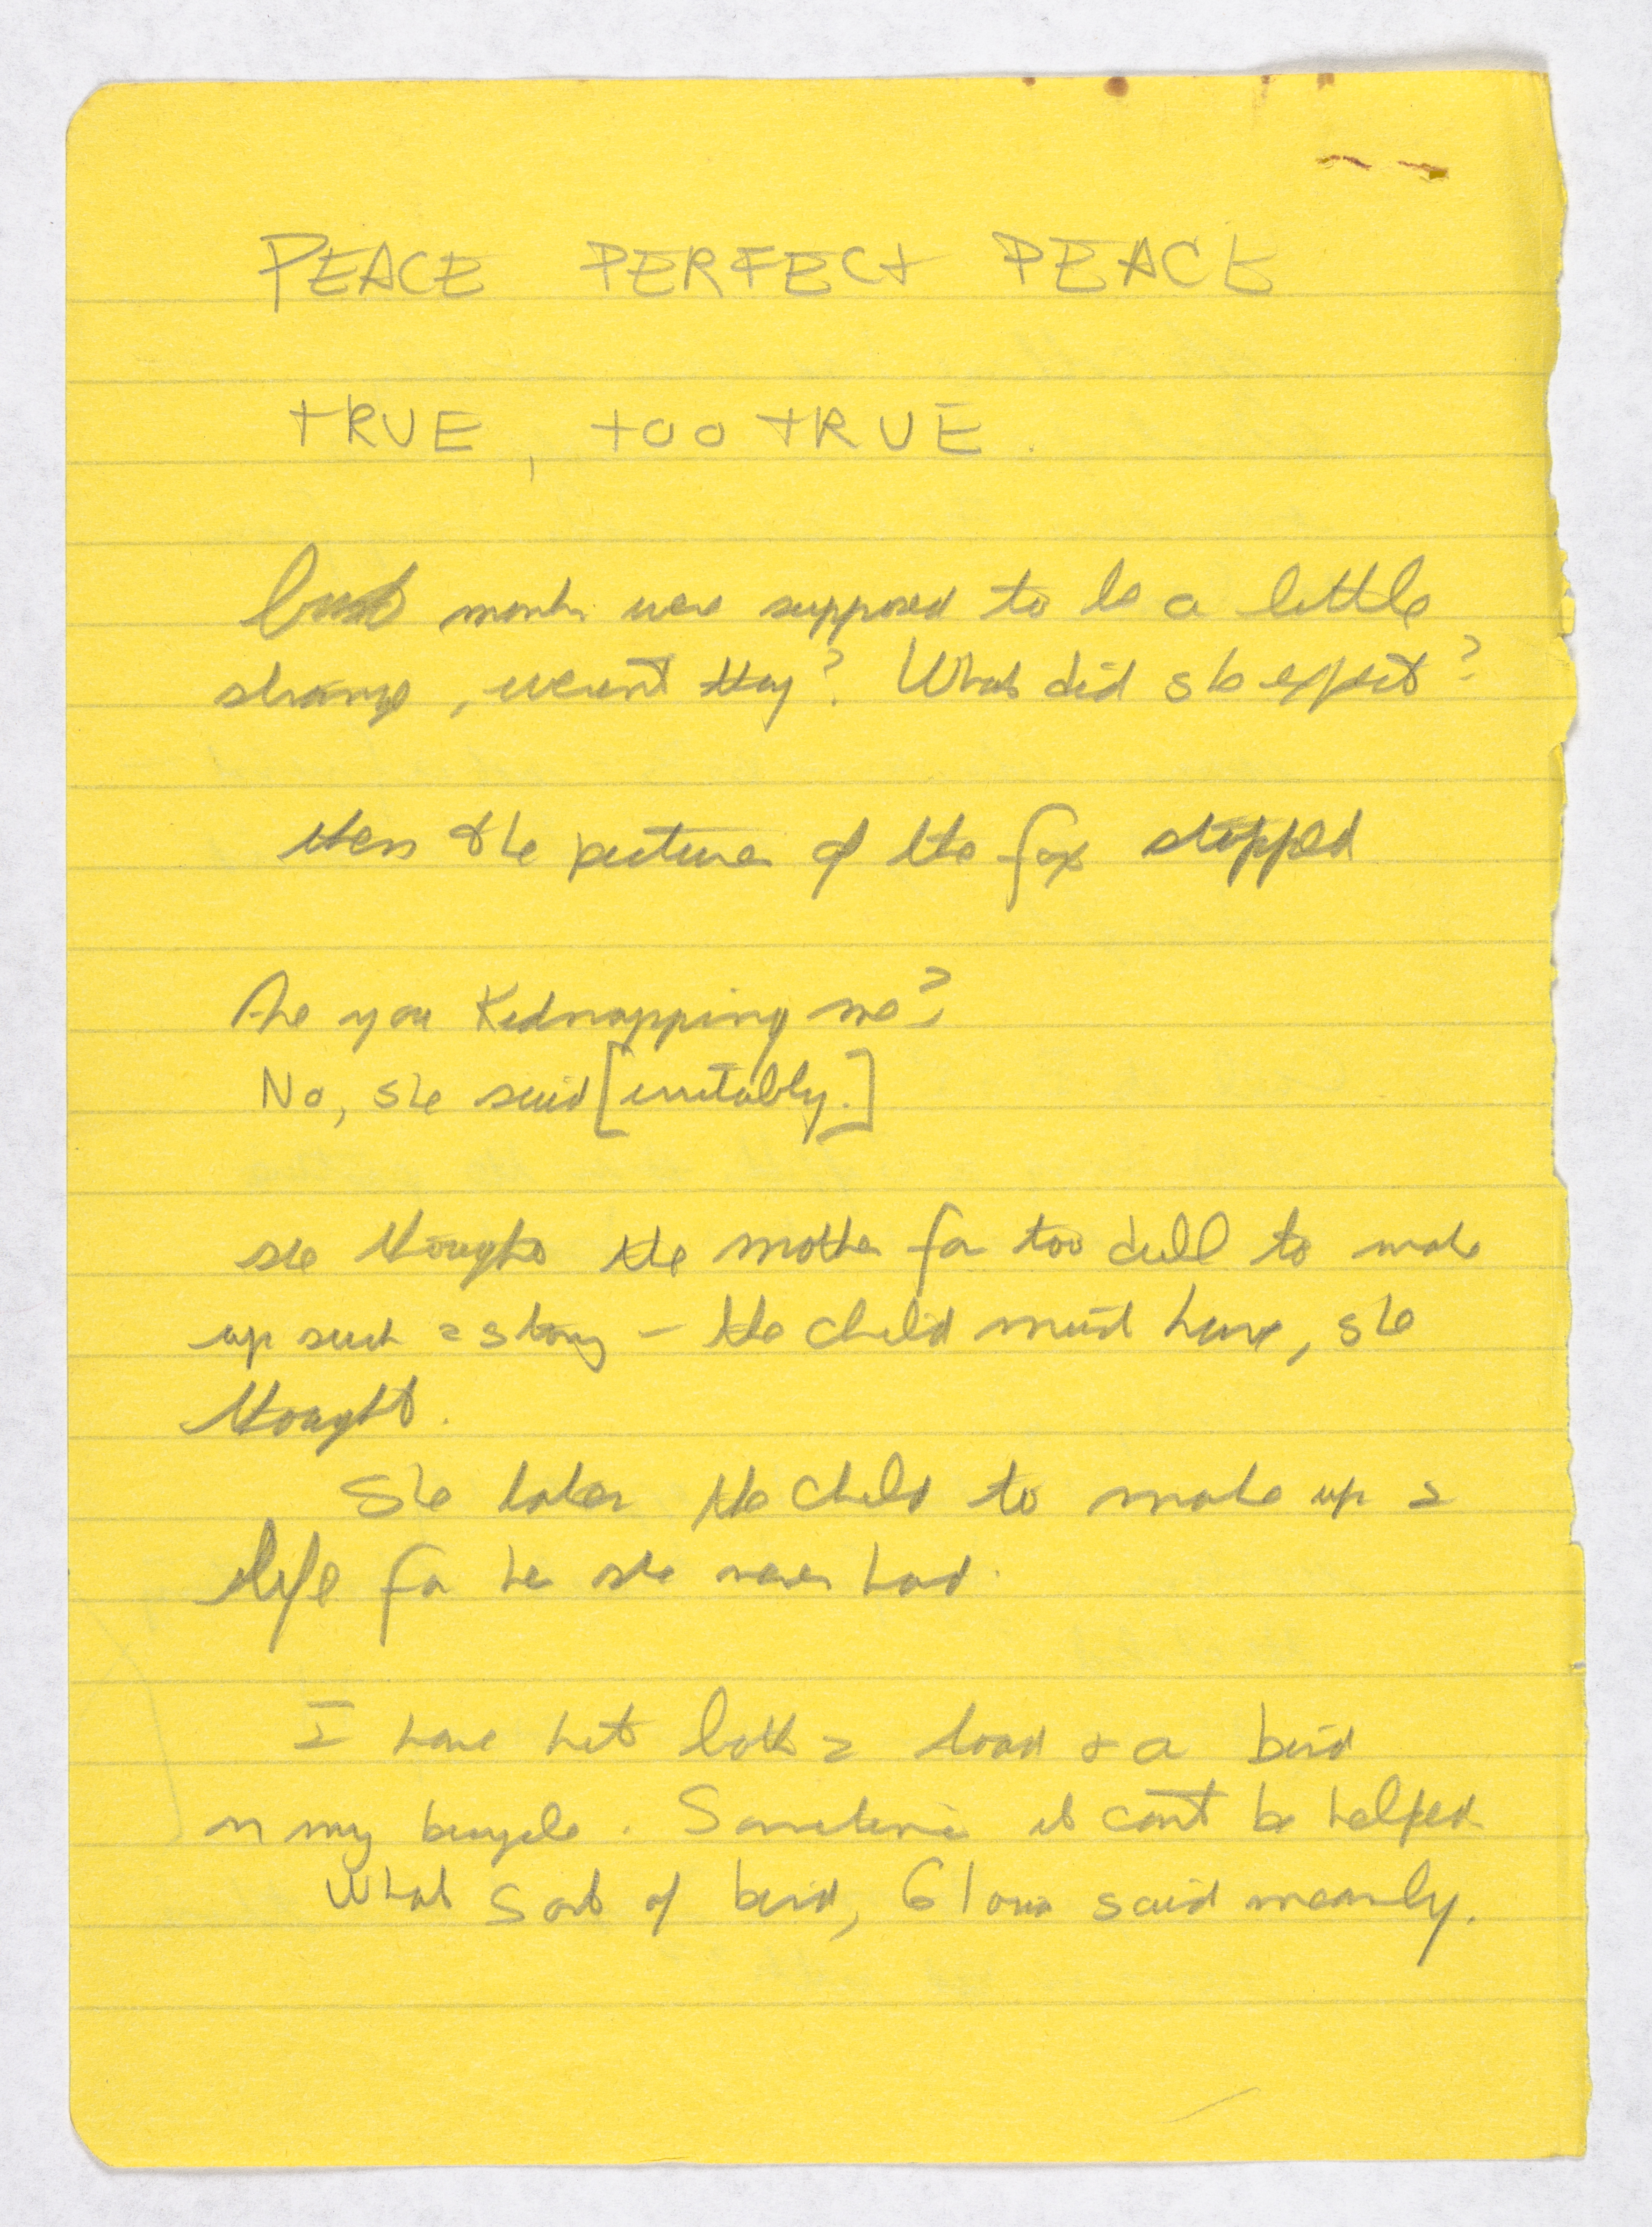 PEACE PERFECT PEACE
TRUE, TOO TRUE.
months were supposed to be a little
strange, weren't they? What did she expect?
then the pictures of the fox stopped
Are you Kidnapping me?
No, she said [irritably.]
she thought the mother far too dull to make
up such a story — the child must have, she
thought.
She takes the child to make up a
life for her she never had.
I have hit both a toad & a bird
on my bicycle. Sometimes it can't be helped.
What sort of bird, Gloria said meanly.